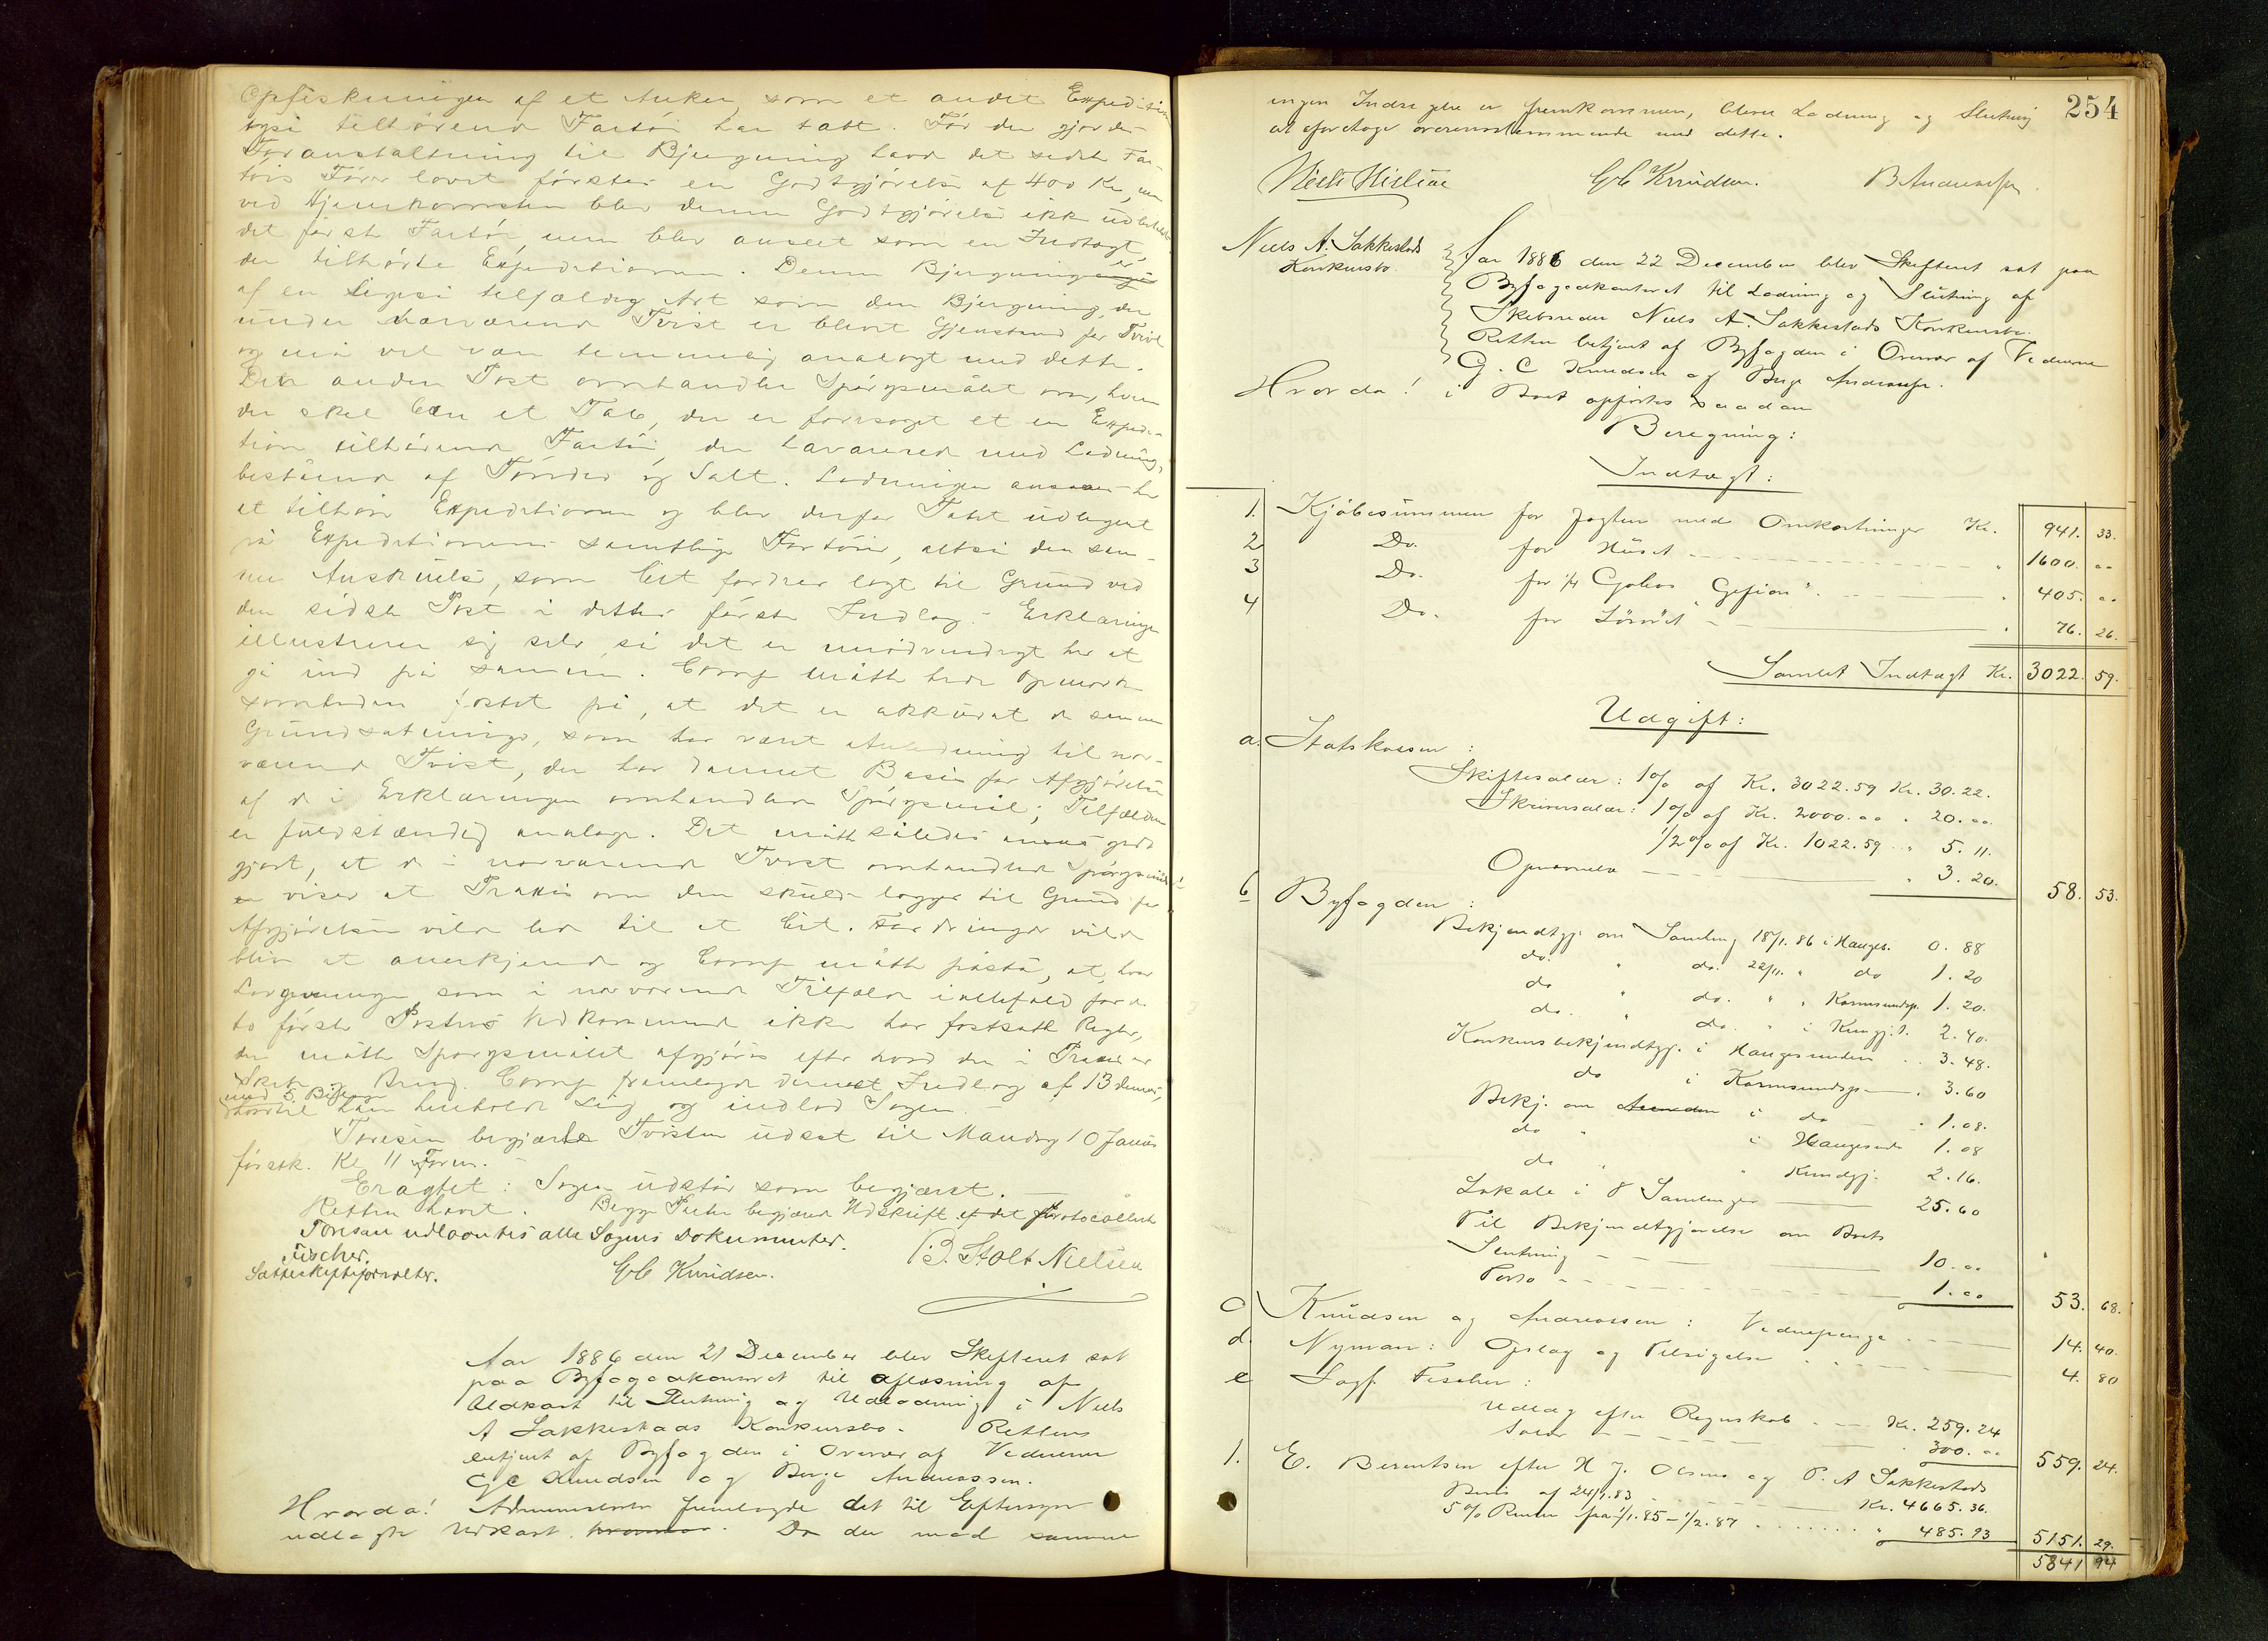 Opfiskningen af et Anker, som et andet Expedition
også tilhørende Fartöi har tabt. Før den gjorde
Foranstaltning til Bjergning havde det sidste Far-
töis Fører lovet første en Godtgjörelse af 400 Kr, men
ved Hjemkomsten blev denne Godtgjörelse ikke udbetalt
det første Fartöi, men blev anseet som en Indtægt,
der tilhörte Expeditionen. Denne Bjergning er
af en ligeså tilfældig Art som den Bjergning, der
under nærværende Tvist er blevet Gjenstand for Tvivl
og må vel være temmelig analogt med dette.
Den anden Post omhandler Spörgsmålet om, hvem
der skal bære et Tab, der er forårsaget et en Expedi-
tion tilhörende Fartöi, der havarerede med Ladning,
bestående af Tönder og Salt. Ladningen ansaaes her
at tilhöre Expeditionen og blev derfor Tabet udlignet
på Expeditionens samtlige Fartöier, altså den sam-
me Anskuelse, som Cit. fordrer lagt til Grund ved
den sidste Post i dettes første Indlæg. Erklæringen
illustrerer sig selv, så det er unödvendigt her at
gå ind på samme. Comp. måtte hede Opmærk-
somheden fæstet på, at det er akkurat de samme
Grundsætninger, som har været Anledning til nær-
værende Tvist, der har dannet Basis for Afgjörelsen
af de i Erklæringen omhandlede Spörgsmål; Tilfældene
er fuldstændig analoge. Det måtte således ansees godt-
gjort, at de i nærværende Tvist omhandlede Spörgsmål
viser at Praxis om den skulde lægges til Grund for
Afgjörelsen vilde lede til at Cit. Fordringer vilde
blive at anerkjende og Comp. måtte påstå, at hvor
Lovgivningen som i nærværende Tilfælde iallefald for de
to første Posters Vedkommende ikke har fastsatte Regler,
der måtte Spörgsmålet afgjöres efter hvad der i Praxis er
Skik og Brug. Comp. fremlagde dernæst Indlæg af 13 dennes,
med 5 Bilage
hvortil han henholdt sig og indlod Sagen. –
Toresen begjærte Tvisten udsat til Mandag 10 Januar
förstk. Kl 11 Form. –
Eragtet: Sagen udstår som begjæret.
Retten hævet. Begge Parter begjærede Udskrift af det Protocollerte
Toresen udlaantes alle Sagens Dokumenter.
Fischer. B. Stolt Nielsen
Sætteskifteforvalter. GC Knudsen.
Aar 1886 den 21 December blev Skifteret sat
paa Byfogedkontoret til Aflæsning af
Udkast til Slutning og Udlodning i Niels
A Sakkestads Konkursbo. Retten
betjent af Byfogden i Overvær af Vidnerne
GC Knudsen og Berge Andreassen.
Hvorda! Administrator fremlagde det til Eftersyn
udlagte Udkast. Da der mod samme
254
ingen Indsigelse er fremkommen, bliver Lodning og Slutning
at foretage overensstemmende med dette.
Niels Nielsen GC Knudsen. B Andreassen.
Niels A. Sakkestads
Konkursbo.
Aar 1886 den 22 December blev Skifteret sat paa
Byfogedkontoret til Lodning og Slutning af
Skibsreder Niels A. Sakkestads Konkursbo.
Retten betjent af Byfogden i Overvær af Vidnerne
G. C Knudsen og Berge Andreassen.
Hvorda! i Boet opførtes saadan
Beregning:
Indtægt:
1. Kjöbesummen for Jagten med Omkostninger Kr. 941. 33.
2 Do. for Huset " 1600. "
3 Do. for 1/4 Galeas "Gefion". " 405. "
4 Do. for Lösöret " 76. 26.
Samlet Indtægt Kr. 3022. 59.
Udgift:
a. Statskassen:
Skiftesalær: 1% af Kr. 3022.59 Kr. 30.22.
Skriversalær: 1% af Kr. 2000.00 " 20.00.
1/2% af Kr. 1022.59 " 5. 11.
Opnævnelse " 3. 20. 58. 53.
b Byfogden:
Bekjendtgj. om Samling 18/1. 86 i Hauges. 0. 88
do. " do. 22/11. " do 1. 20
do " do. " " Karmsundsp. 1. 20.
do. " do. " i Kungjt. 2. 40.
Konkursbekjendtgj. i Haugesunderen 3. 48.
do i Karmsundsp. 3. 60
Bekj. om i do 1. 08.
do " i Haugesund 1. 08
do " " Kundgj. 2. 16.
Lokale i 8 Samlinger 25. 60
Til Bekjendtgjørelse om Boets
Slutning 10. 00
Porto 1. 00 53. 68.
c Knudsen og Andreassen: Vidnepenge 14. 40.
d. Nyman: Opslag og Tilsigelse 4. 80
e Sagf. Fischer:
Udlæg efter Regnskab Kr. 259. 24
Salær 300. 00 559. 24.
1. E. Berentsen efter H J. Olsens og P. A Sakkestads
Bevis af 24/1.83 Kr. 4665. 36.
5% Renter fra 1/1.85 – 1/2.87 " 485. 93 5151. 29.
5841 94